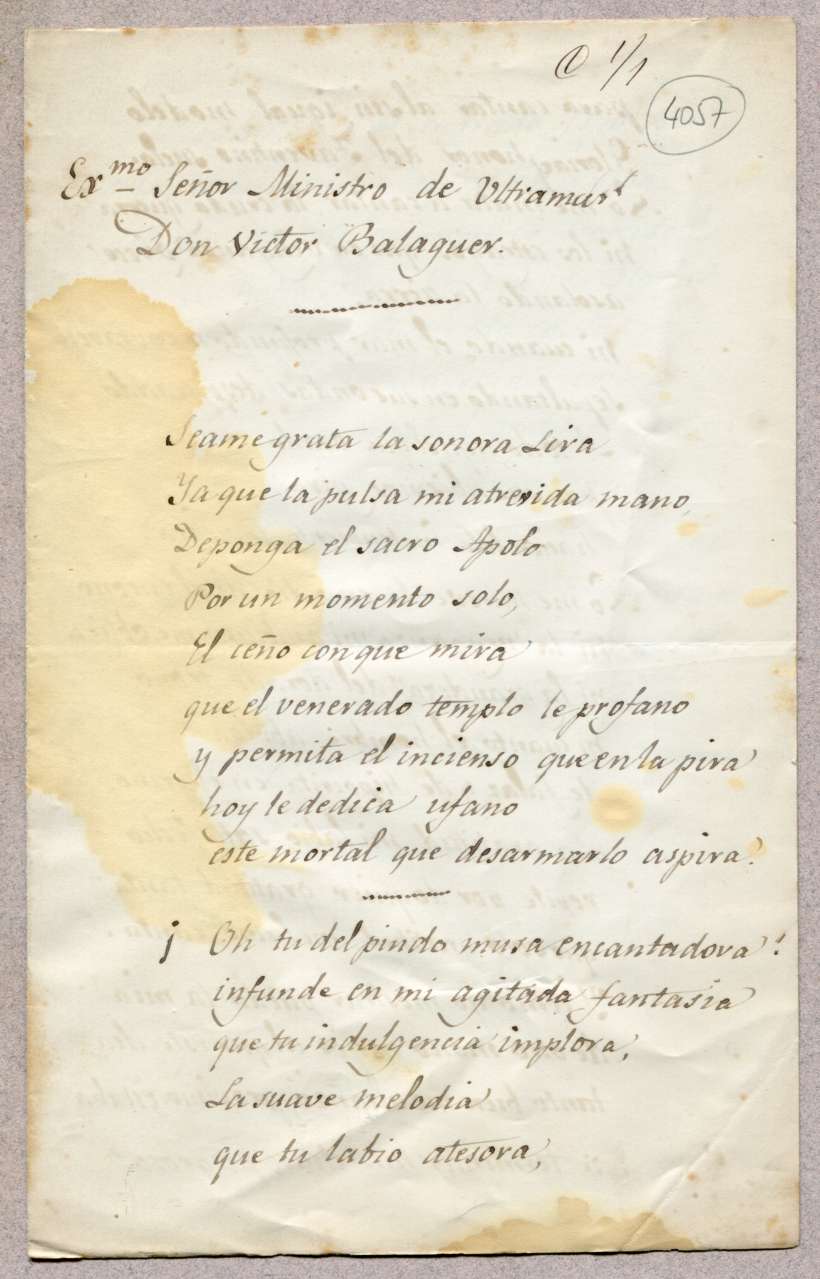 1/1
4057
Exmo Señor Ministro de Ultramar
Don Victor Balaguer.
Seame grata la sonora Lira
Ya que la pulsa mi atrevida mano,
Deponga el sacro Apolo
Por un momento solo,
El ceño con que mira
que el venerado templo le profano
y permita el incienso que en la pira
hoy le dedica ufano
este mortal que desarmarlo aspira.
¡Oh tu del pindo musa encantadora!
infunde en mi agitada fantasía
que tu indulgencia implora,
La suave melodia
que tu labio atesora,